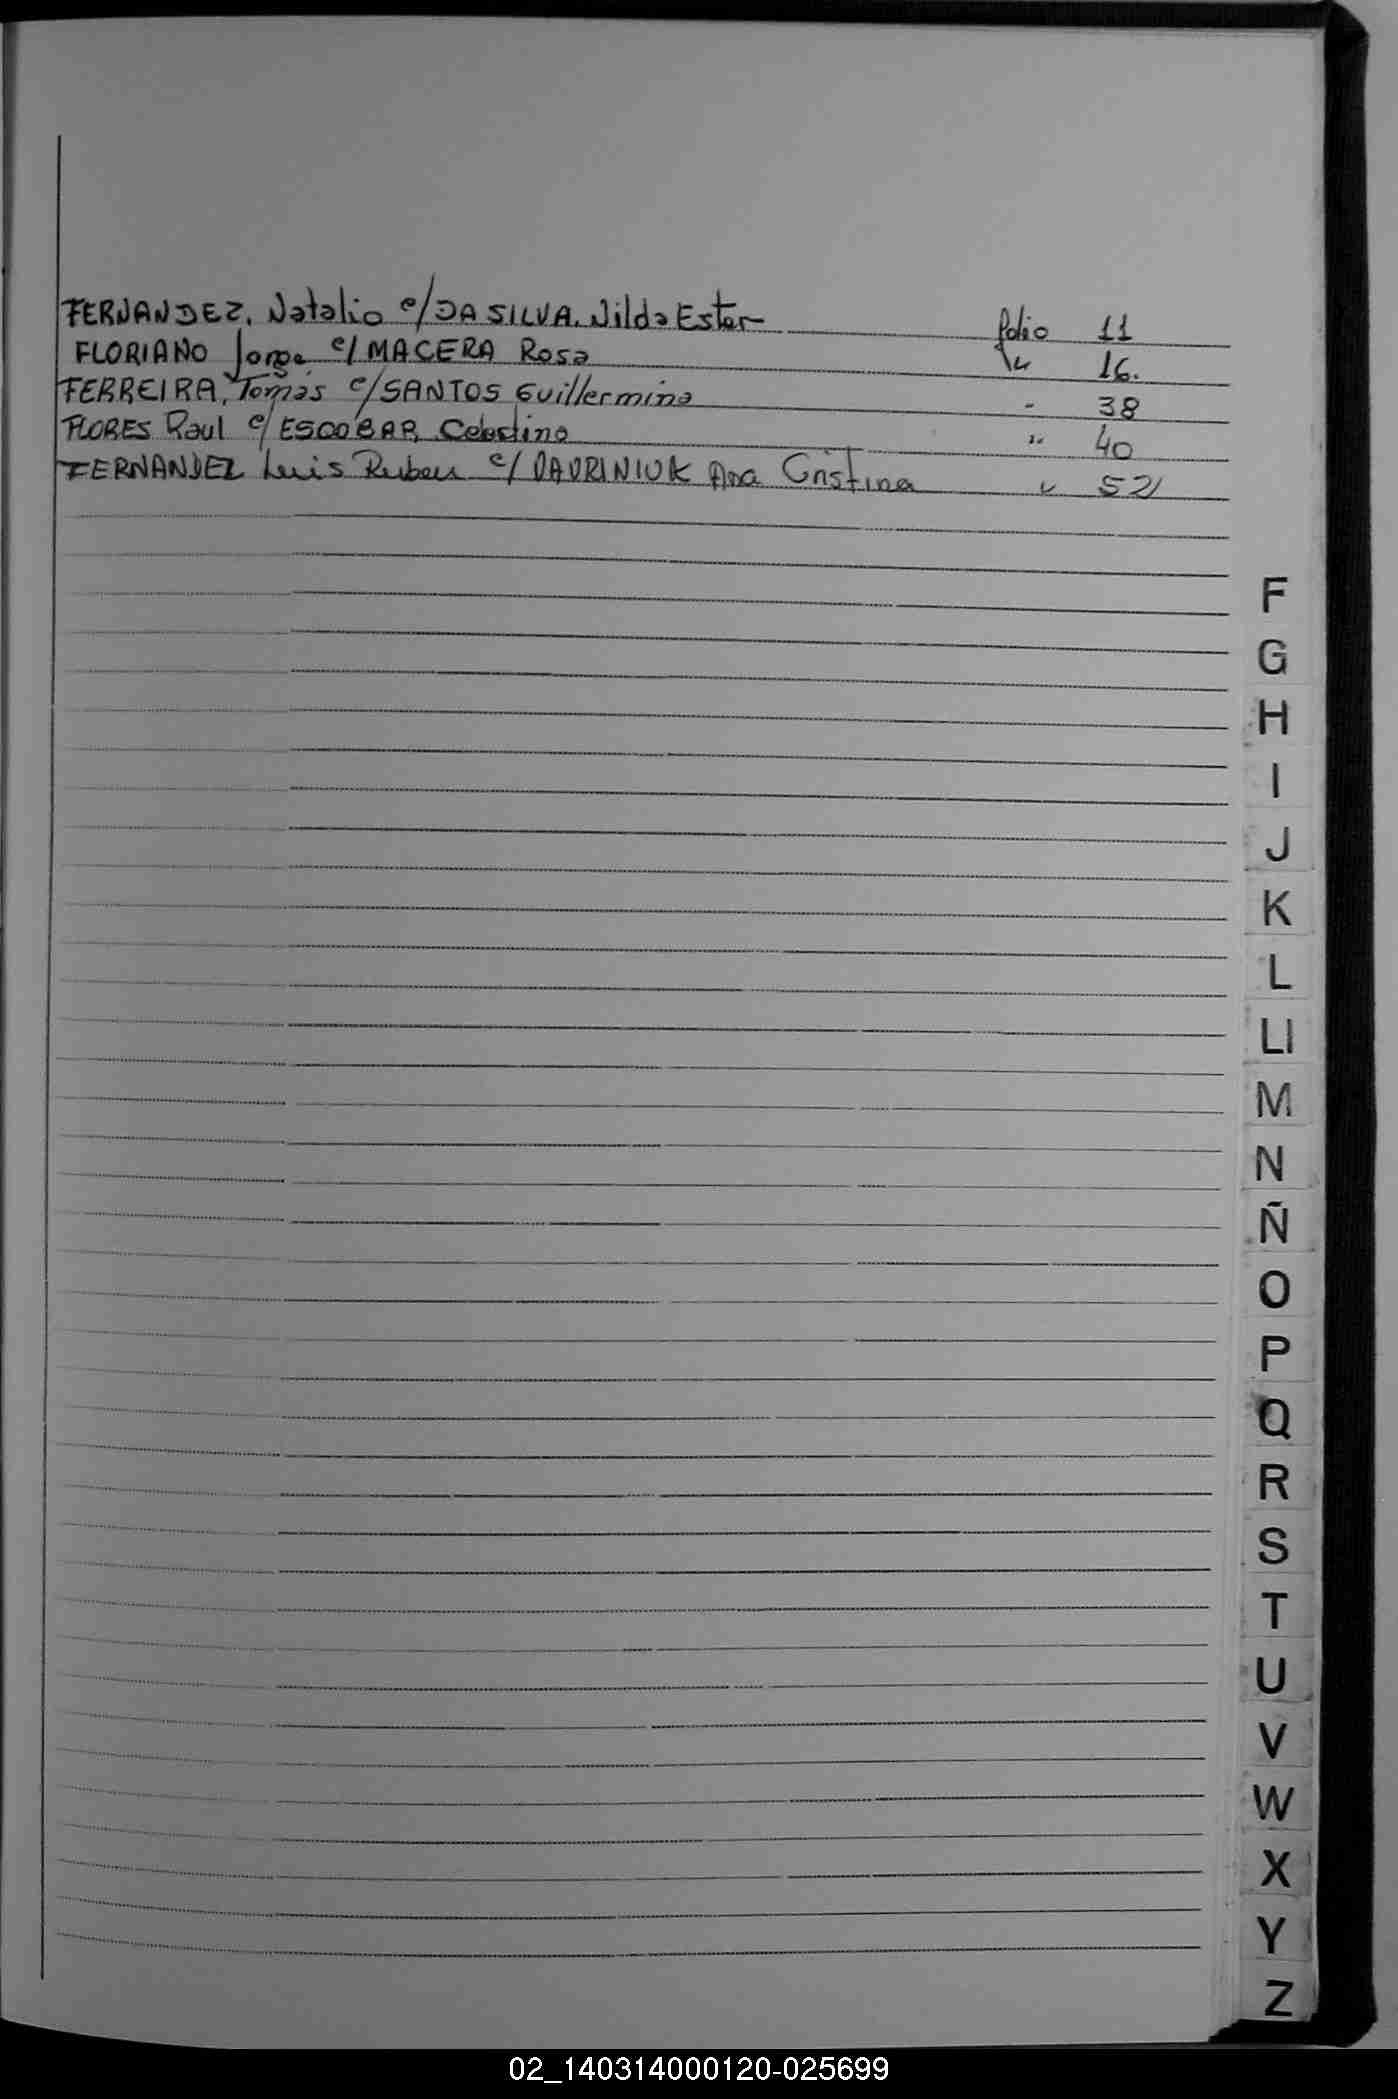 FERNANDEZ, Natalio c/ DA SILVA, Nilda Ester folio 11
FLORIANO Jorge c/ MACERA Rosa " 16.
FERREIRA, Tomas c/ SANTOS Guillermina " 38
FLORES Raul c/ ESCOBAR Celestina " 40
FERNANDEZ Luis Ruben c/ DAURINIUK Ana Cristina " 52
F
G
H
I
J
K
L
Ll
M
N
Ñ
O
P
Q
R
S
T
U
V
W
X
Y
Z
02_140314000120-025699